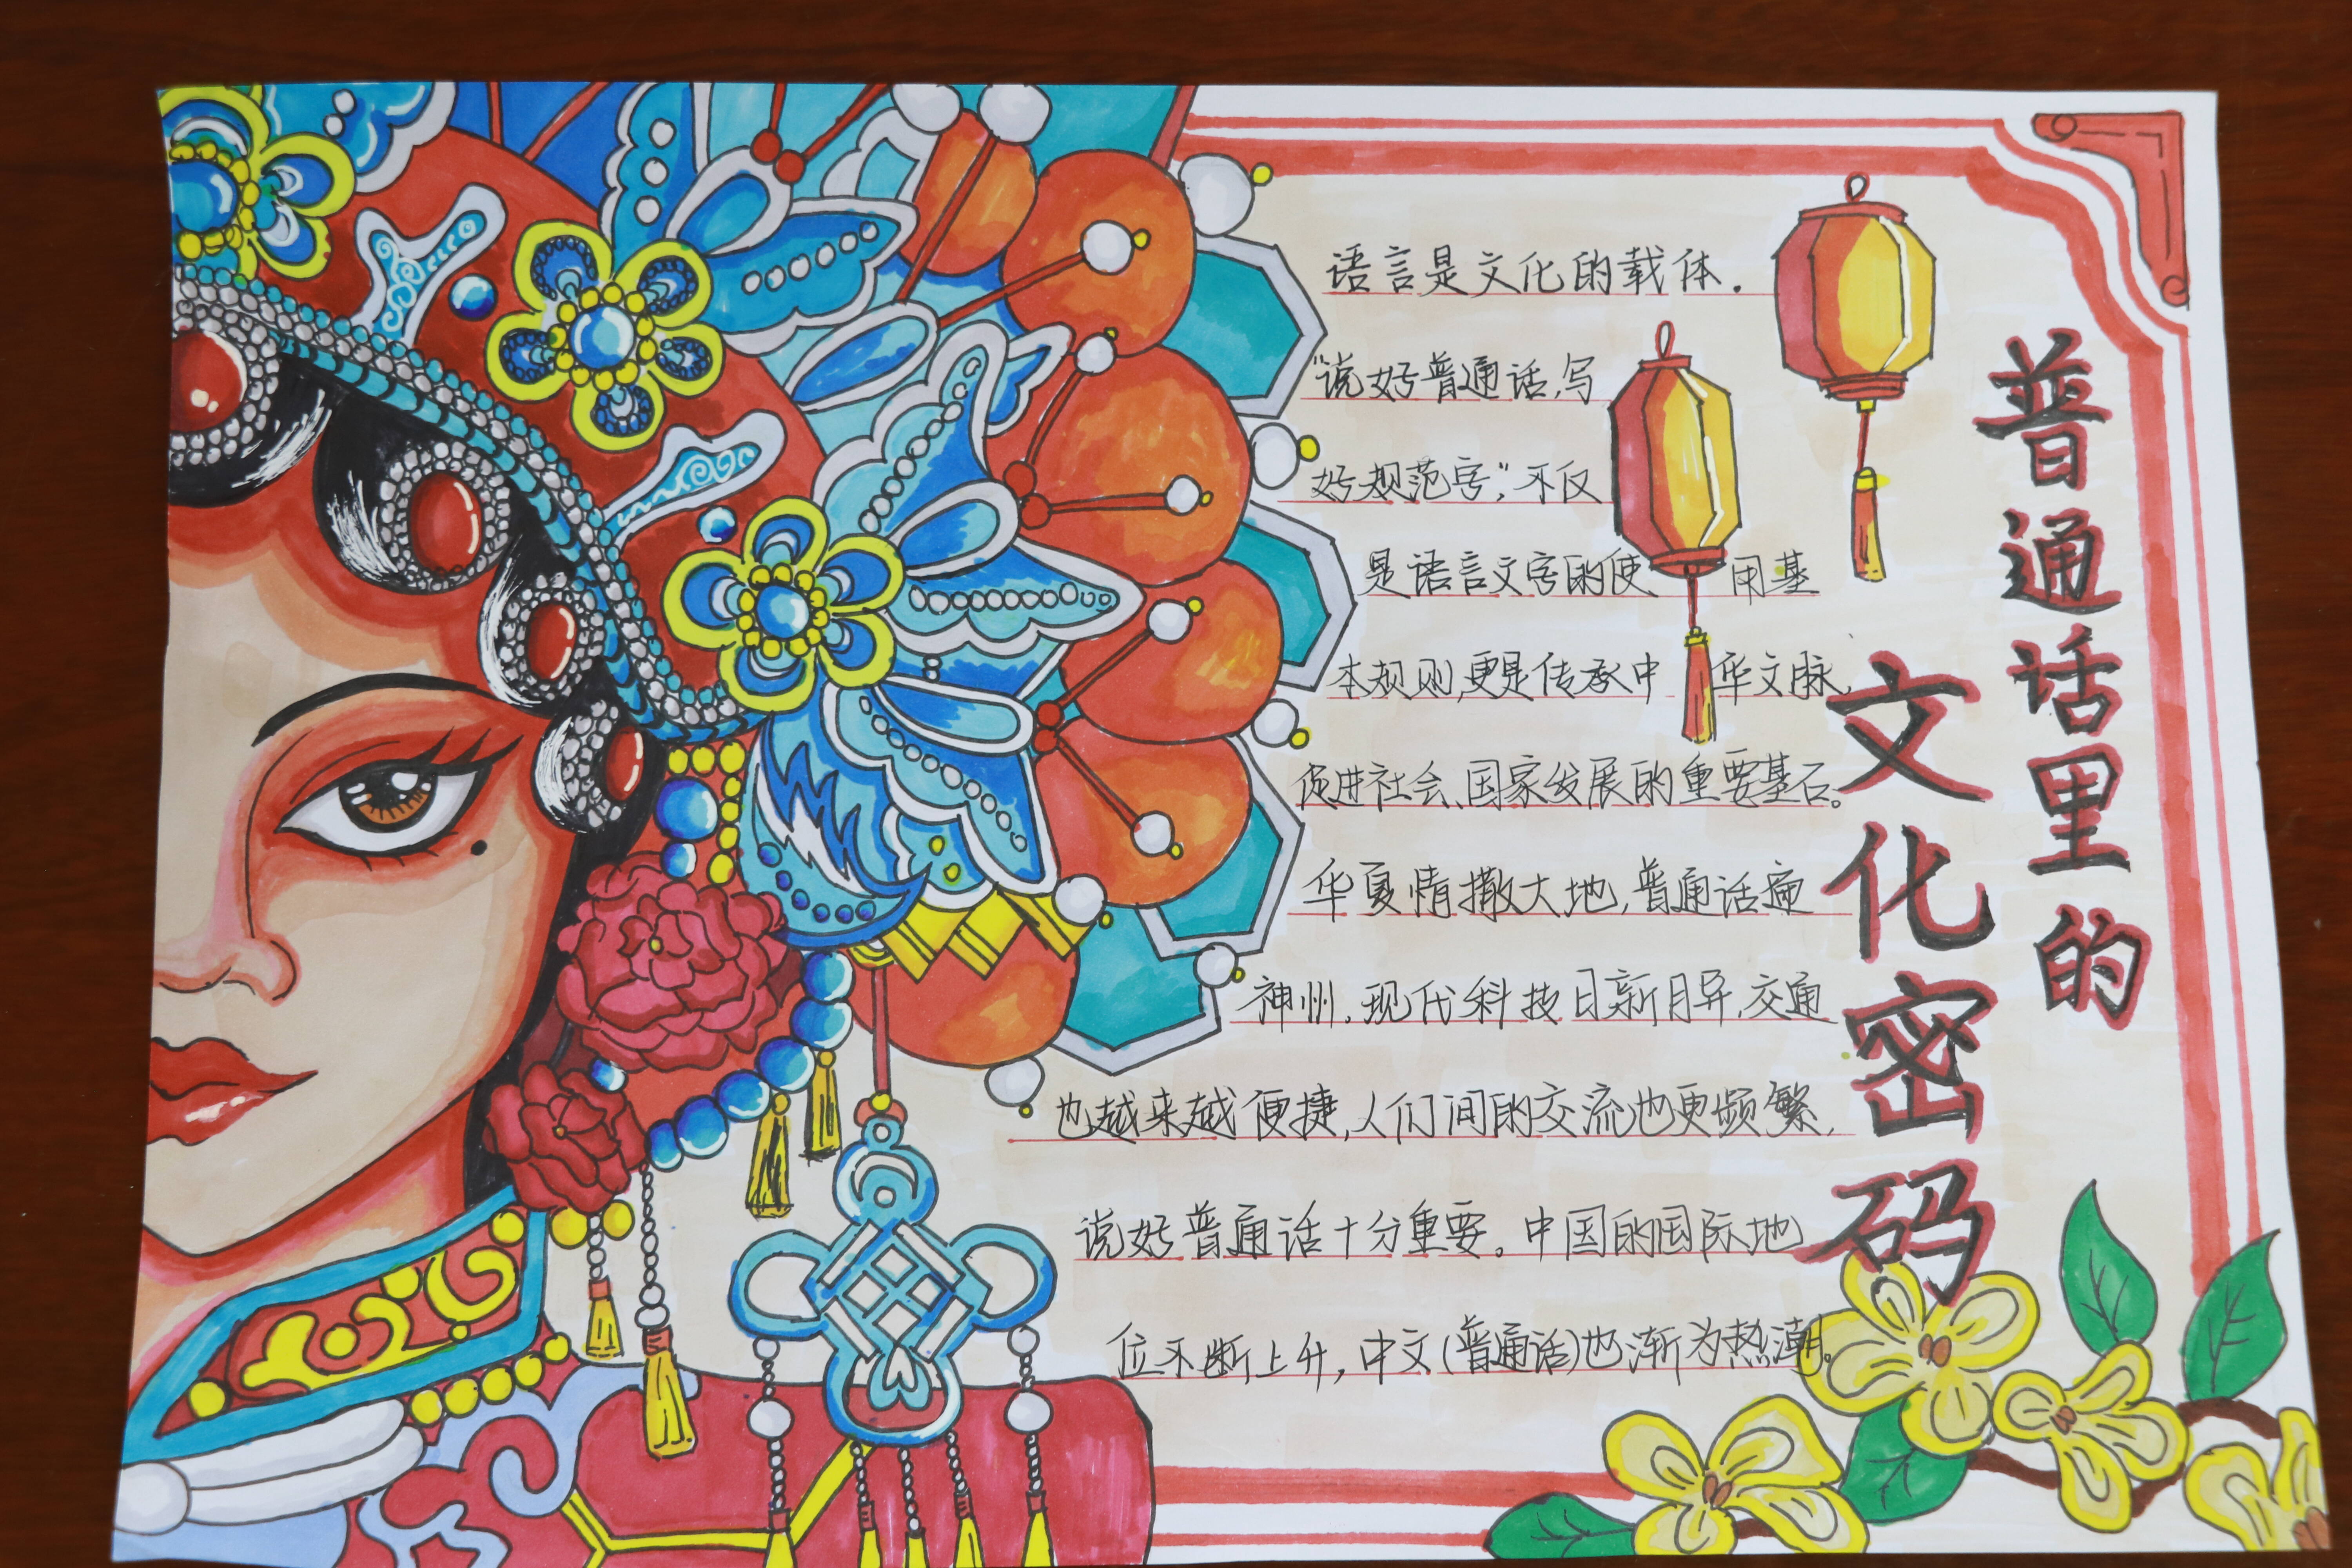 普通话里的
文化密码
语言是文化的载体.
“说好普通话,写
好规范字”,不仅
是语言文字的使用基
本规则,更是传承中华文脉,
促进社会、国家发展的重要基石。
华夏情撒大地,普通话遍
神州。现代科技日新月异,交通
也越来越便捷,人们间的交流也更频繁,
说好普通话十分重要。中国的国际地
位不断上升,中文(普通话)也渐为热潮。